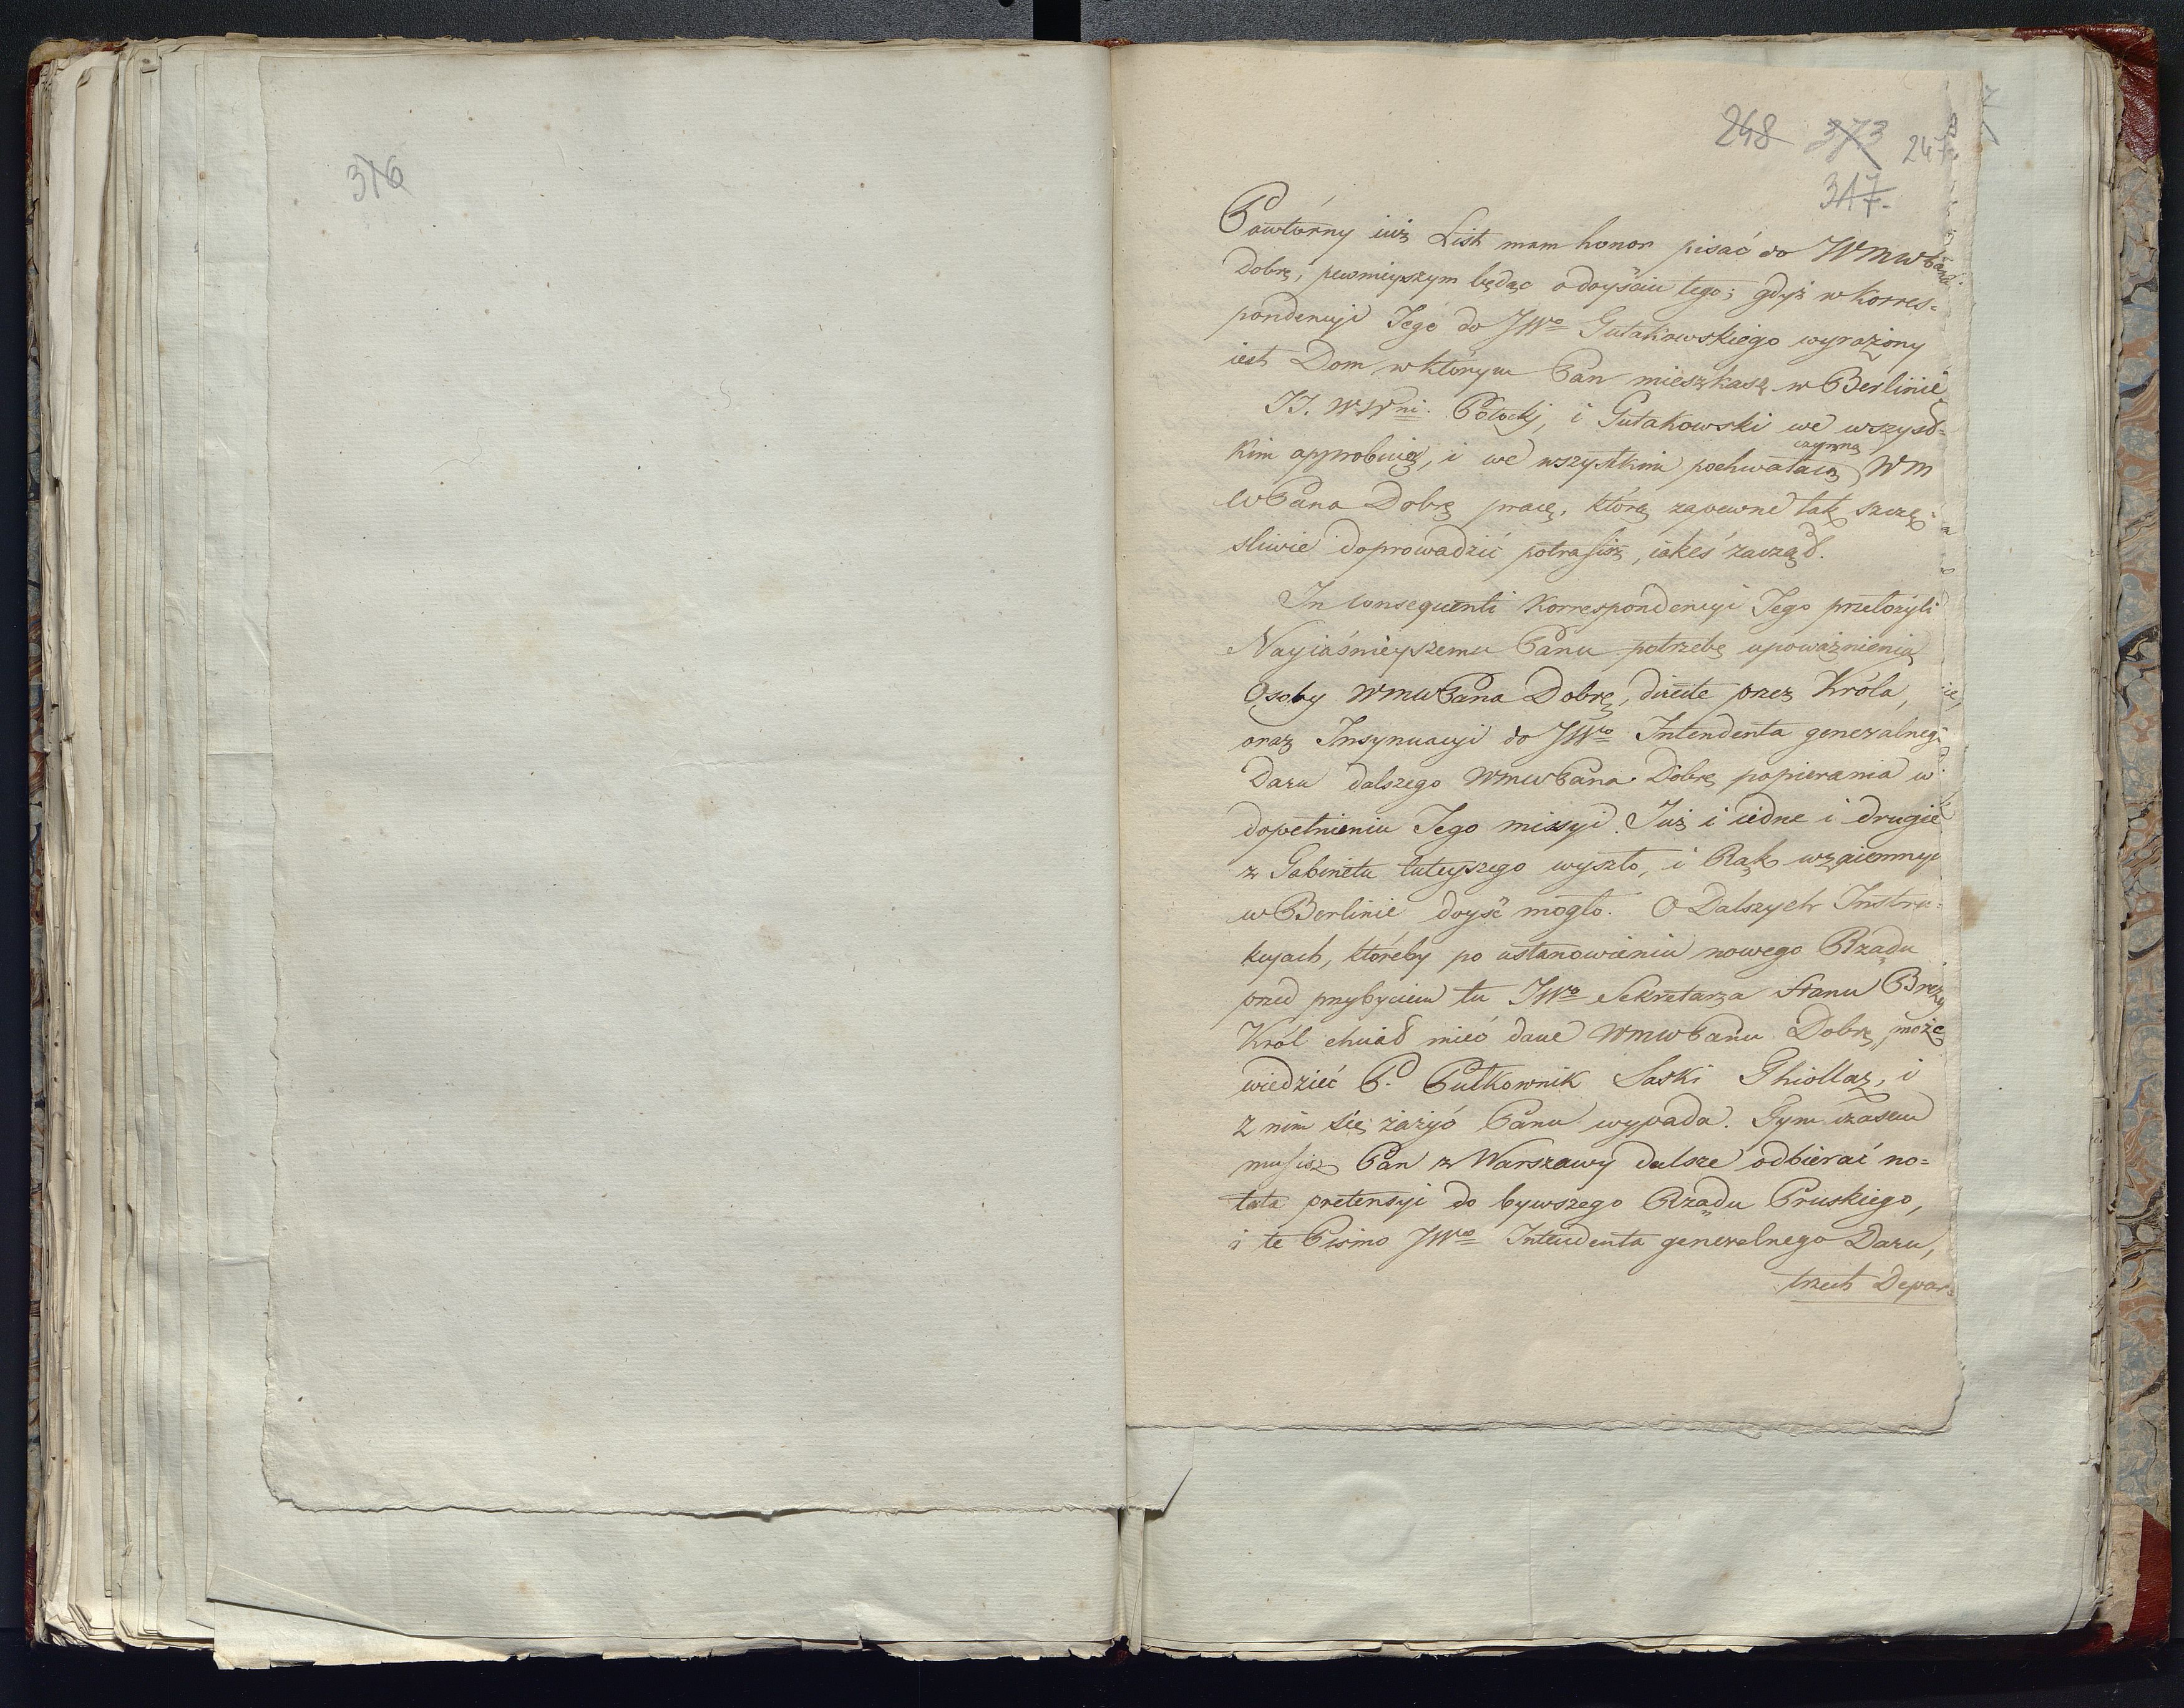 316
248 373 247
317.
Powtórny iuż List mam honor pisać do WMWPana
Dobrę, pewnieyszym będąc o doyściu tego; gdyż w Korres-
pondencyi Jego do JWo Gutakowskiego wyrażony
iest Dom w którym Pan mieszkasz w Berlinie
JJ. WWni. Potocky, i Gutakowski we wszyst-
kim approbuią, i we wszystkim pochwalaią czynną WM
WPana Dobrę pracę, którą zapewne tak szczę-
sliwie doprowadzić potrafisz, iakeś zaczął.
In consequenti Korrespondencyi Jego przełożyli
Nayiaśnieyszemu Panu potrzebę upoważnienia
Osoby WMWPana Dobrę, directe przez Króla,
oraz Insynuacyi do JWo Intendenta generalnego
Daru dalszego WMWPana Dobrę popierania w
dopełnieniu Jego missyi. Już i iedne i drugie
z Gabinetu tuteyszego wyszło, i Rąk wzaiemnych
w Berlinie doyść mogło. O Dalszych Instru-
kcyach, któreby po ustanowieniu nowego Rządu
przed przybyciem tu JWo Sekretarza Stanu Brezy
Król chciał mieć dane WMWPanu Dobrę, może
wiedzieć P. Pułkownik Saski Thiollaz, i
z nim się zażyć Panu wypada. Tym czasem
musisz Pan z Warszawy dalsze odbierać no-
tata pretensyi do bywszego Rządu Pruskiego,
i te Pismo JWo Intendenta generalnego Daru,
trzech Depar-